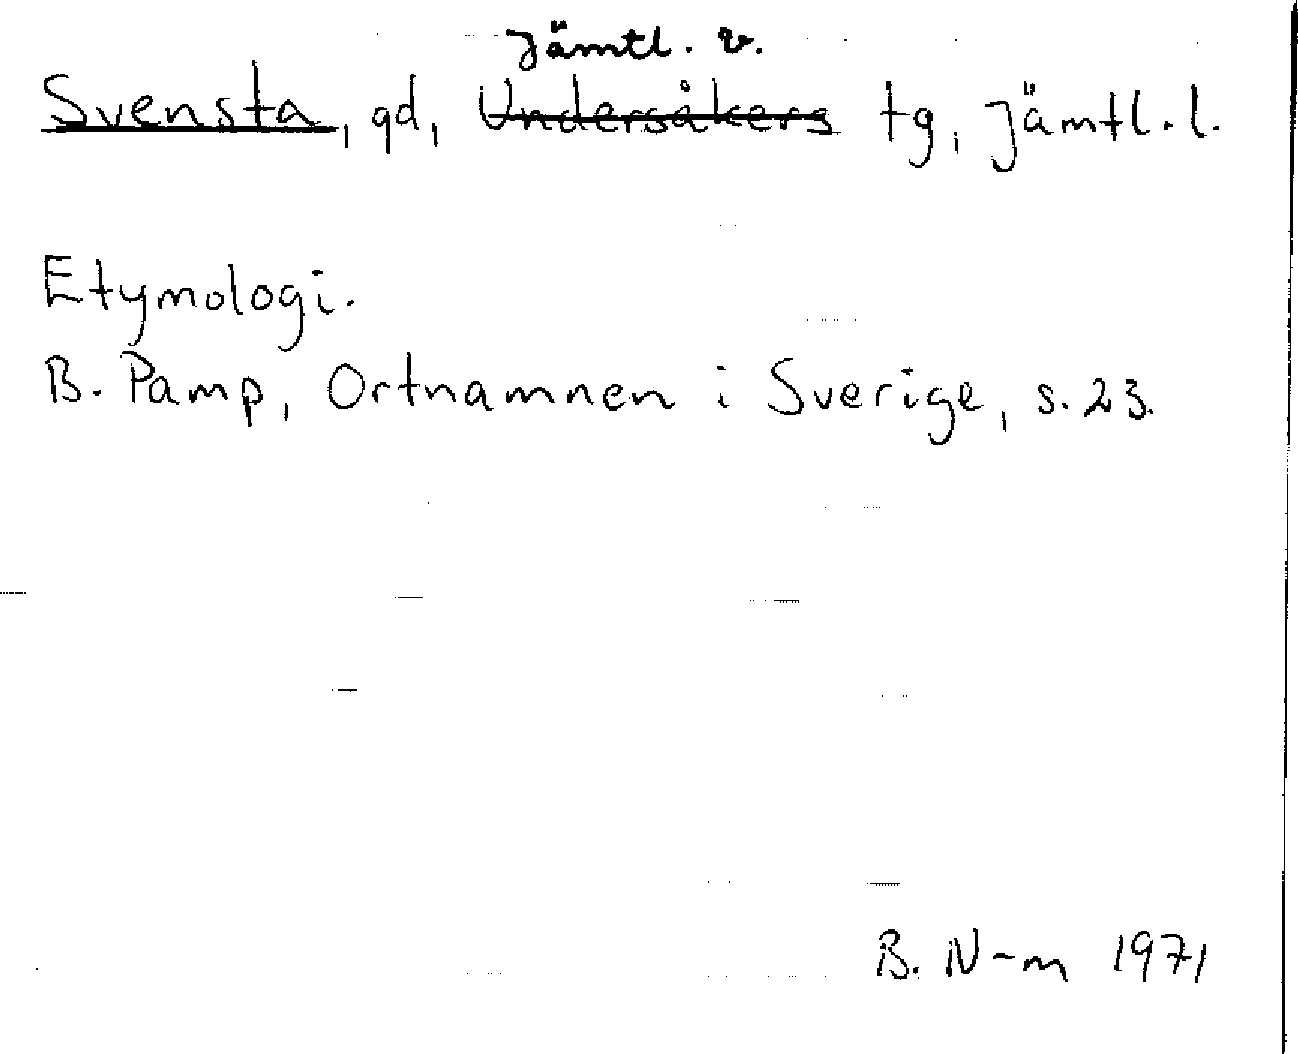 Jämtl. v.
Svensta, gd, Undersåkers tg, Jämtl. l.
Etymologi.
B. Pamp, Ortnamnen i Sverige, s. 23.
B. N-m 1971